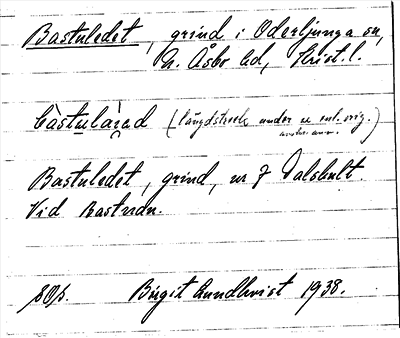 Bastuledet, grind i Oderljunga sn,
N. Åsbo hd, Krist. l.
bàstulàed (längdstreck under u enl. orig.
Bastuledet, grind, nr 7 Dalshult.
Vid Bastudn.
SOp. Birgit Lundkvist 1938.